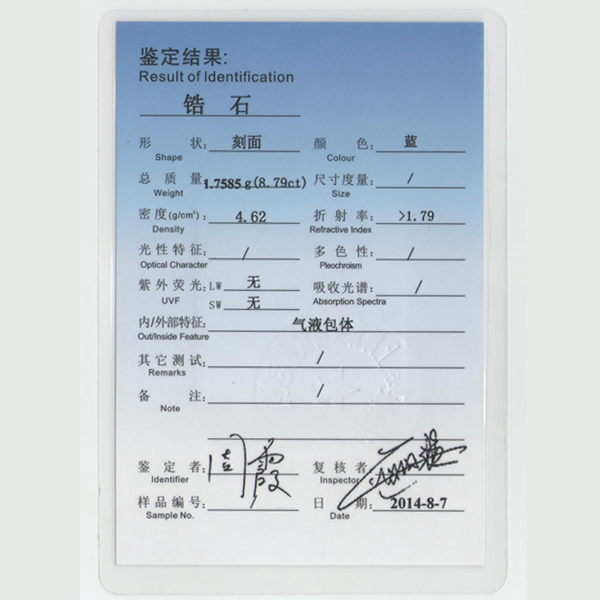 鉴定结果:
Result of Identification
锆 石
形 状: 刻面 颜 色: 蓝
Shape Colour
总 质 量 1.7585g(8.79ct) 尺寸度量: /
Weight Size
密度(g/cm³): 4.62 折 射 率: >1.79
Density Refractive Index
光性特征: / 多 色 性: /
Optical Character Pleochroism
紫外荧光: LW 无 吸收光谱: /
UVF SW 无 Absorption Spectra
内/外部特征: 气液包体
Out/Inside Feature
其它测试: /
Remarks
备 注: /
Note
鉴 定 者: 周霞 复 核 者
Identifier Inspector
样品编号: 日 期: 2014-8-7
Sample No. Date